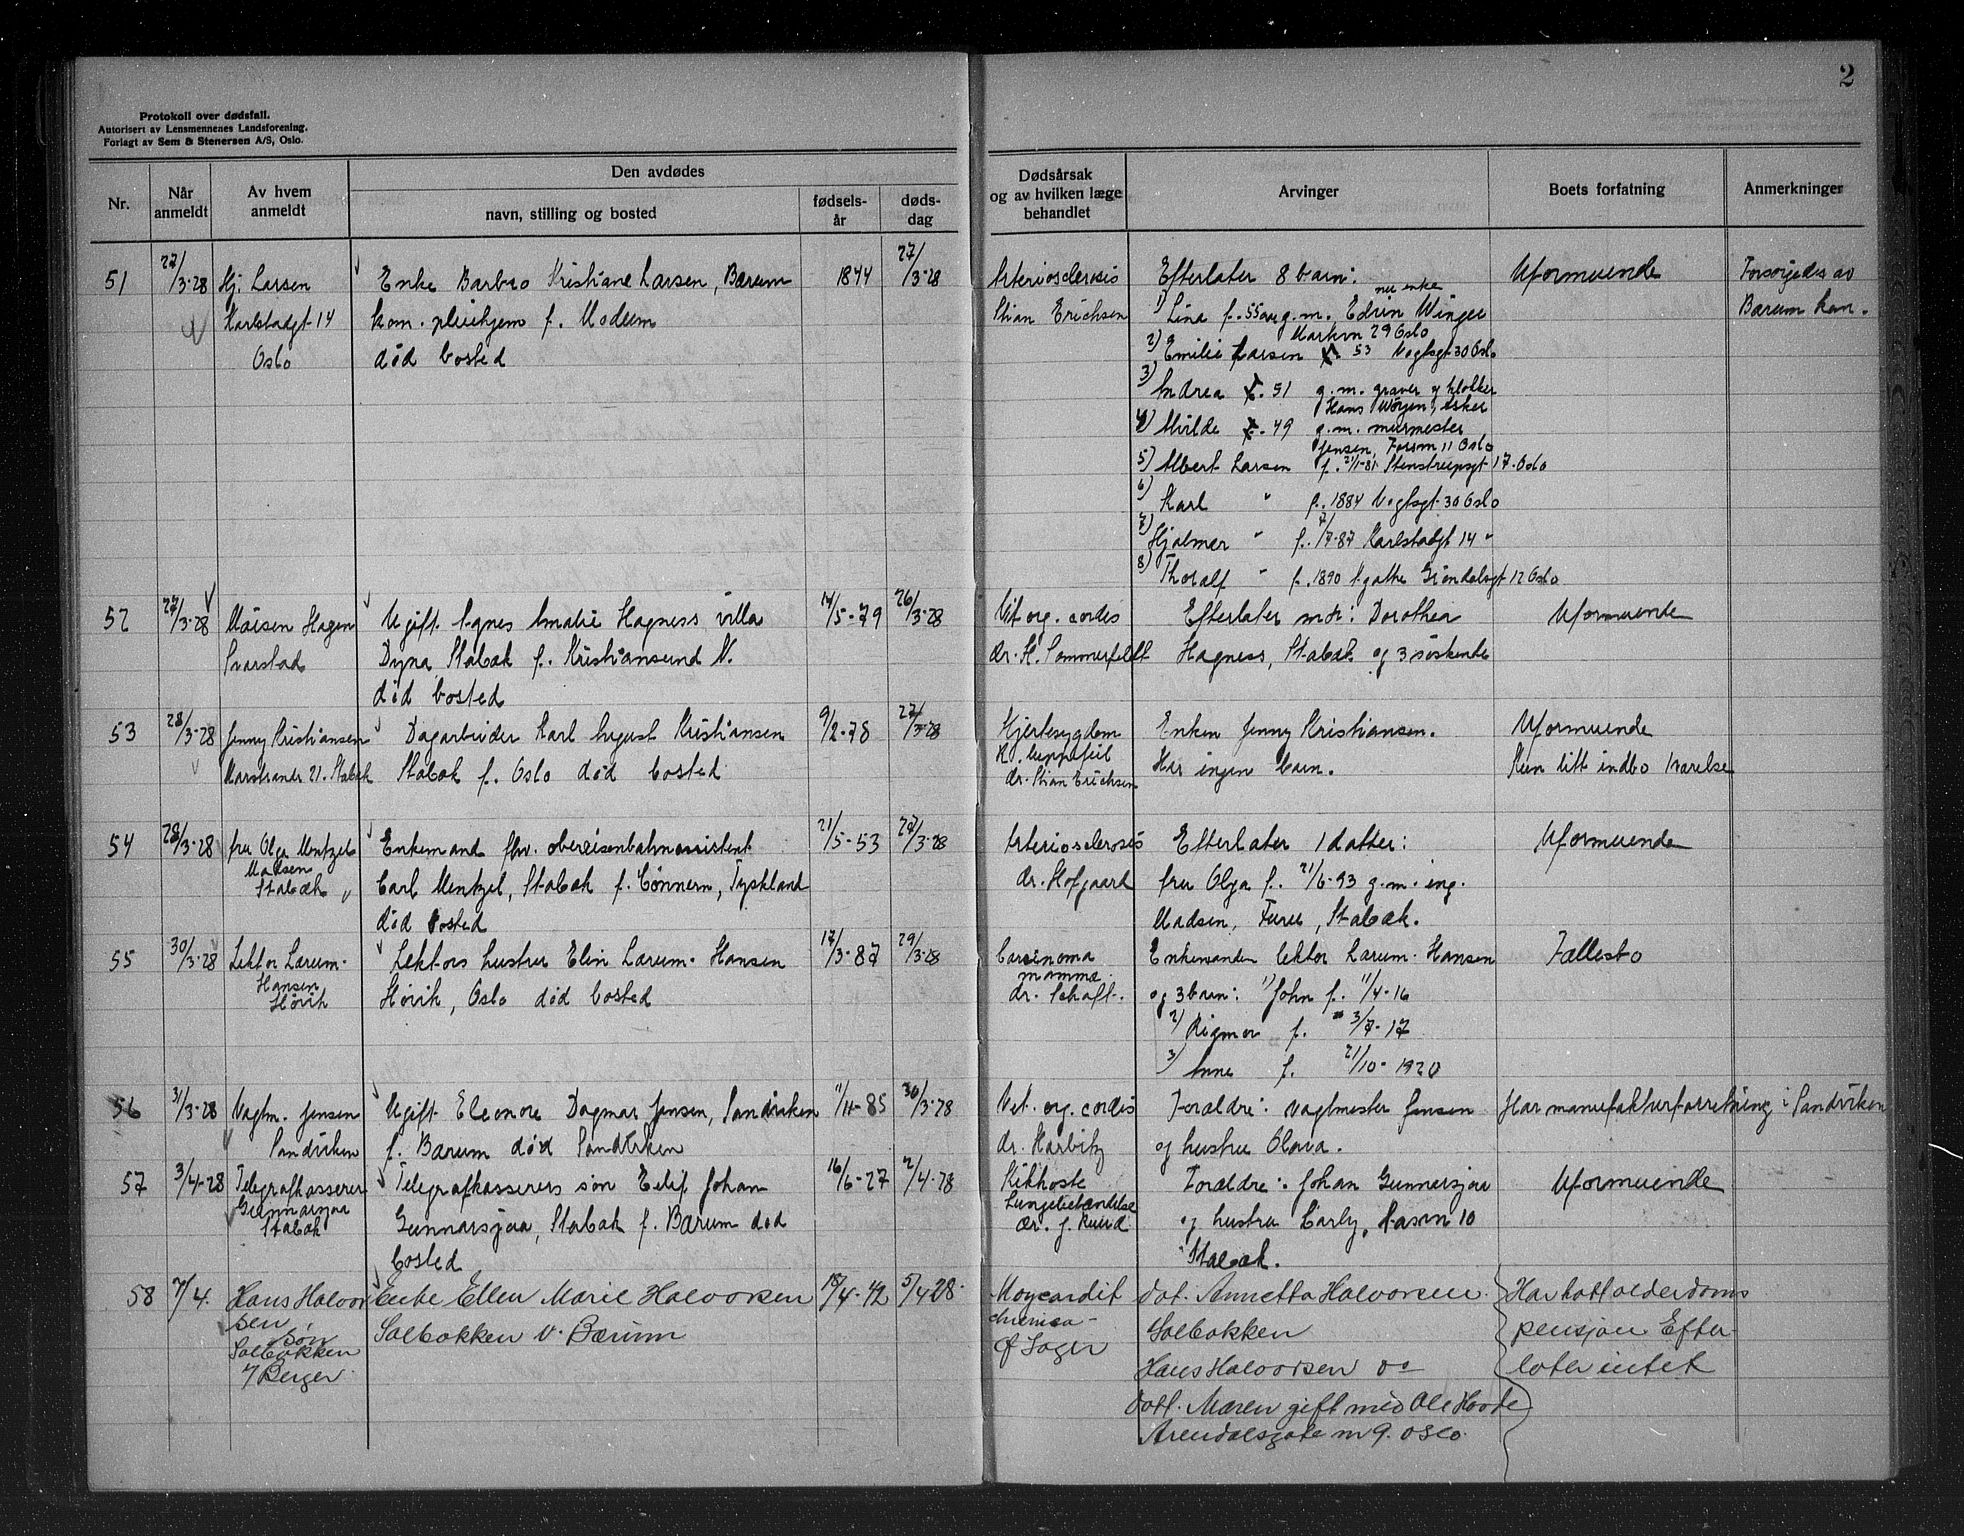 2
Protokoll over dødsfall.
Autorisert av Lensmennenes Landsforening.
Forlagt av Sem & Stenersen A/S, Oslo.
Nr.
Når anmeldt
Av hvem anmeldt
Den avdødes
navn, stilling og bosted
fødselsår
dødsdag
Dødsårsak og av hvilken læge behandlet
Arvinger
Boets forfatning
Anmerkninger
51
27/3-28
Hj. Larsen
Karlstadgt 14
Oslo
Enke Barbro Kristiane Larsen, Bærum
kom. pleiehjem f. Modum
død bosted
1844
27/3-28
Arteriosclerosis
Stian Erichsen
Efterlater 8 barn:
nu enke
1) Lina f. 55 g.m. Edvin Winger
Markvn 29 Oslo
2) Emilie Larsen f. 53 Vogtsgt 30 Oslo
3) Andrea f. 51 g.m. graver og klokker
Hans Asker
4) f. 49 g.m. murmester
Jensen, 11 Oslo
5) Albert Larsen f. 21/1-81 Stenstrupsgt 17. Oslo
6) Karl " f. 1884 Vogtsgt 30 Oslo
7) Hjalmar " f. 7/7-87 Karlstadgt 14 "
8) Thoralf " f. 1890 Agathe Grøndalsgt 12 Oslo
Uformuende
Forsørgedes av
Bærum kom.
52
27/3-28
Hagen
Ugift Agnes Amalie Hagness villa
Dyna Stabæk f. Kristiansund N.
død bosted
14/5-79
26/3-28
Vit. org. cordis
dr. H. Sommerfeldt
Efterlater mor: Dorothea
Hagness, Stabæk og 3 søskende
Uformuende
53
28/3-28
Jenny Kristiansen
Marstrandr 21. Stabæk
Dagarbeider Karl August Kristiansen
Stabæk f. Oslo død bosted
9/2-78
27/3-28
Hjertesygdom
dr. Stian Erichsen
Enken Jenny Kristiansen.
Har ingen barn.
Uformuende
Kun litt indbo 1 værelse
54
28/3-28
fru Olga Mentzel
Madsen
Stabæk
Enkemand fhv. obereisenbahnassistent
Carl Mentzel, Stabæk f. Cönnern, Tyskland
død bosted
21/5-53
27/3-28
Arteriosclerosis
dr. Hofgaard
Efterlater 1 datter:
fru Olga f. 21/6-93 g.m. ing.
Madsen, Furu, Stabæk.
Uformuende
55
30/3-28
Lektor Larum-
Hansen
Høvik
Lektors hustru Elin Larum-Hansen
Høvik, Oslo død bosted
17/3-87
29/3-28
Carsinoma
mamma.
dr. Schaft.
Enkemanden lektor Larum-Hansen
og 3 barn: 1) John f. 11/4-16
2) Rigmor f. 3/7-17
3) Anne f. 21/10-1920
Fællesbo
56
31/3-28
Vagtm. Jensen
Sandviken
Ugift Eleonore Dagmar Jensen, Sandviken
f. Bærum død Sandviken
11/11-85
30/3-28
Vit. org. cordis
dr. Harbitz
Forældre: vagtmester Jensen
og hustru Olava.
Har manufakturforretning i Sandviken
57
3/4-28
Telegrafkasserer
Gunnarsjaa
Stabæk
Telegrafkasserers søn Eilif Johan
Gunnarsjaa, Stabæk f. Bærum død
bosted
16/6-27
2/4-28
Kikhoste
Lungebetændelse
dr. J. Ruud
Forældre: Johan Gunnarsjaa
og hustru Carly, 10
Stabæk.
Uformuende
58
7/4.
Hans Halvor
sen
søn
Solbakken
Berger
Enke Ellen Marie Halvorsen
Solbakken V. Bærum
18/4-42
5/4 28.
Myocardit
chronica
Dat. Annetta Halvorsen
Solbakken
Hans Halvorsen do
datt. Maren gift med Ole Hovde
Arendalsgate nr 9. Oslo.
Har hatt alderdoms
pensjon Efter-
later intet